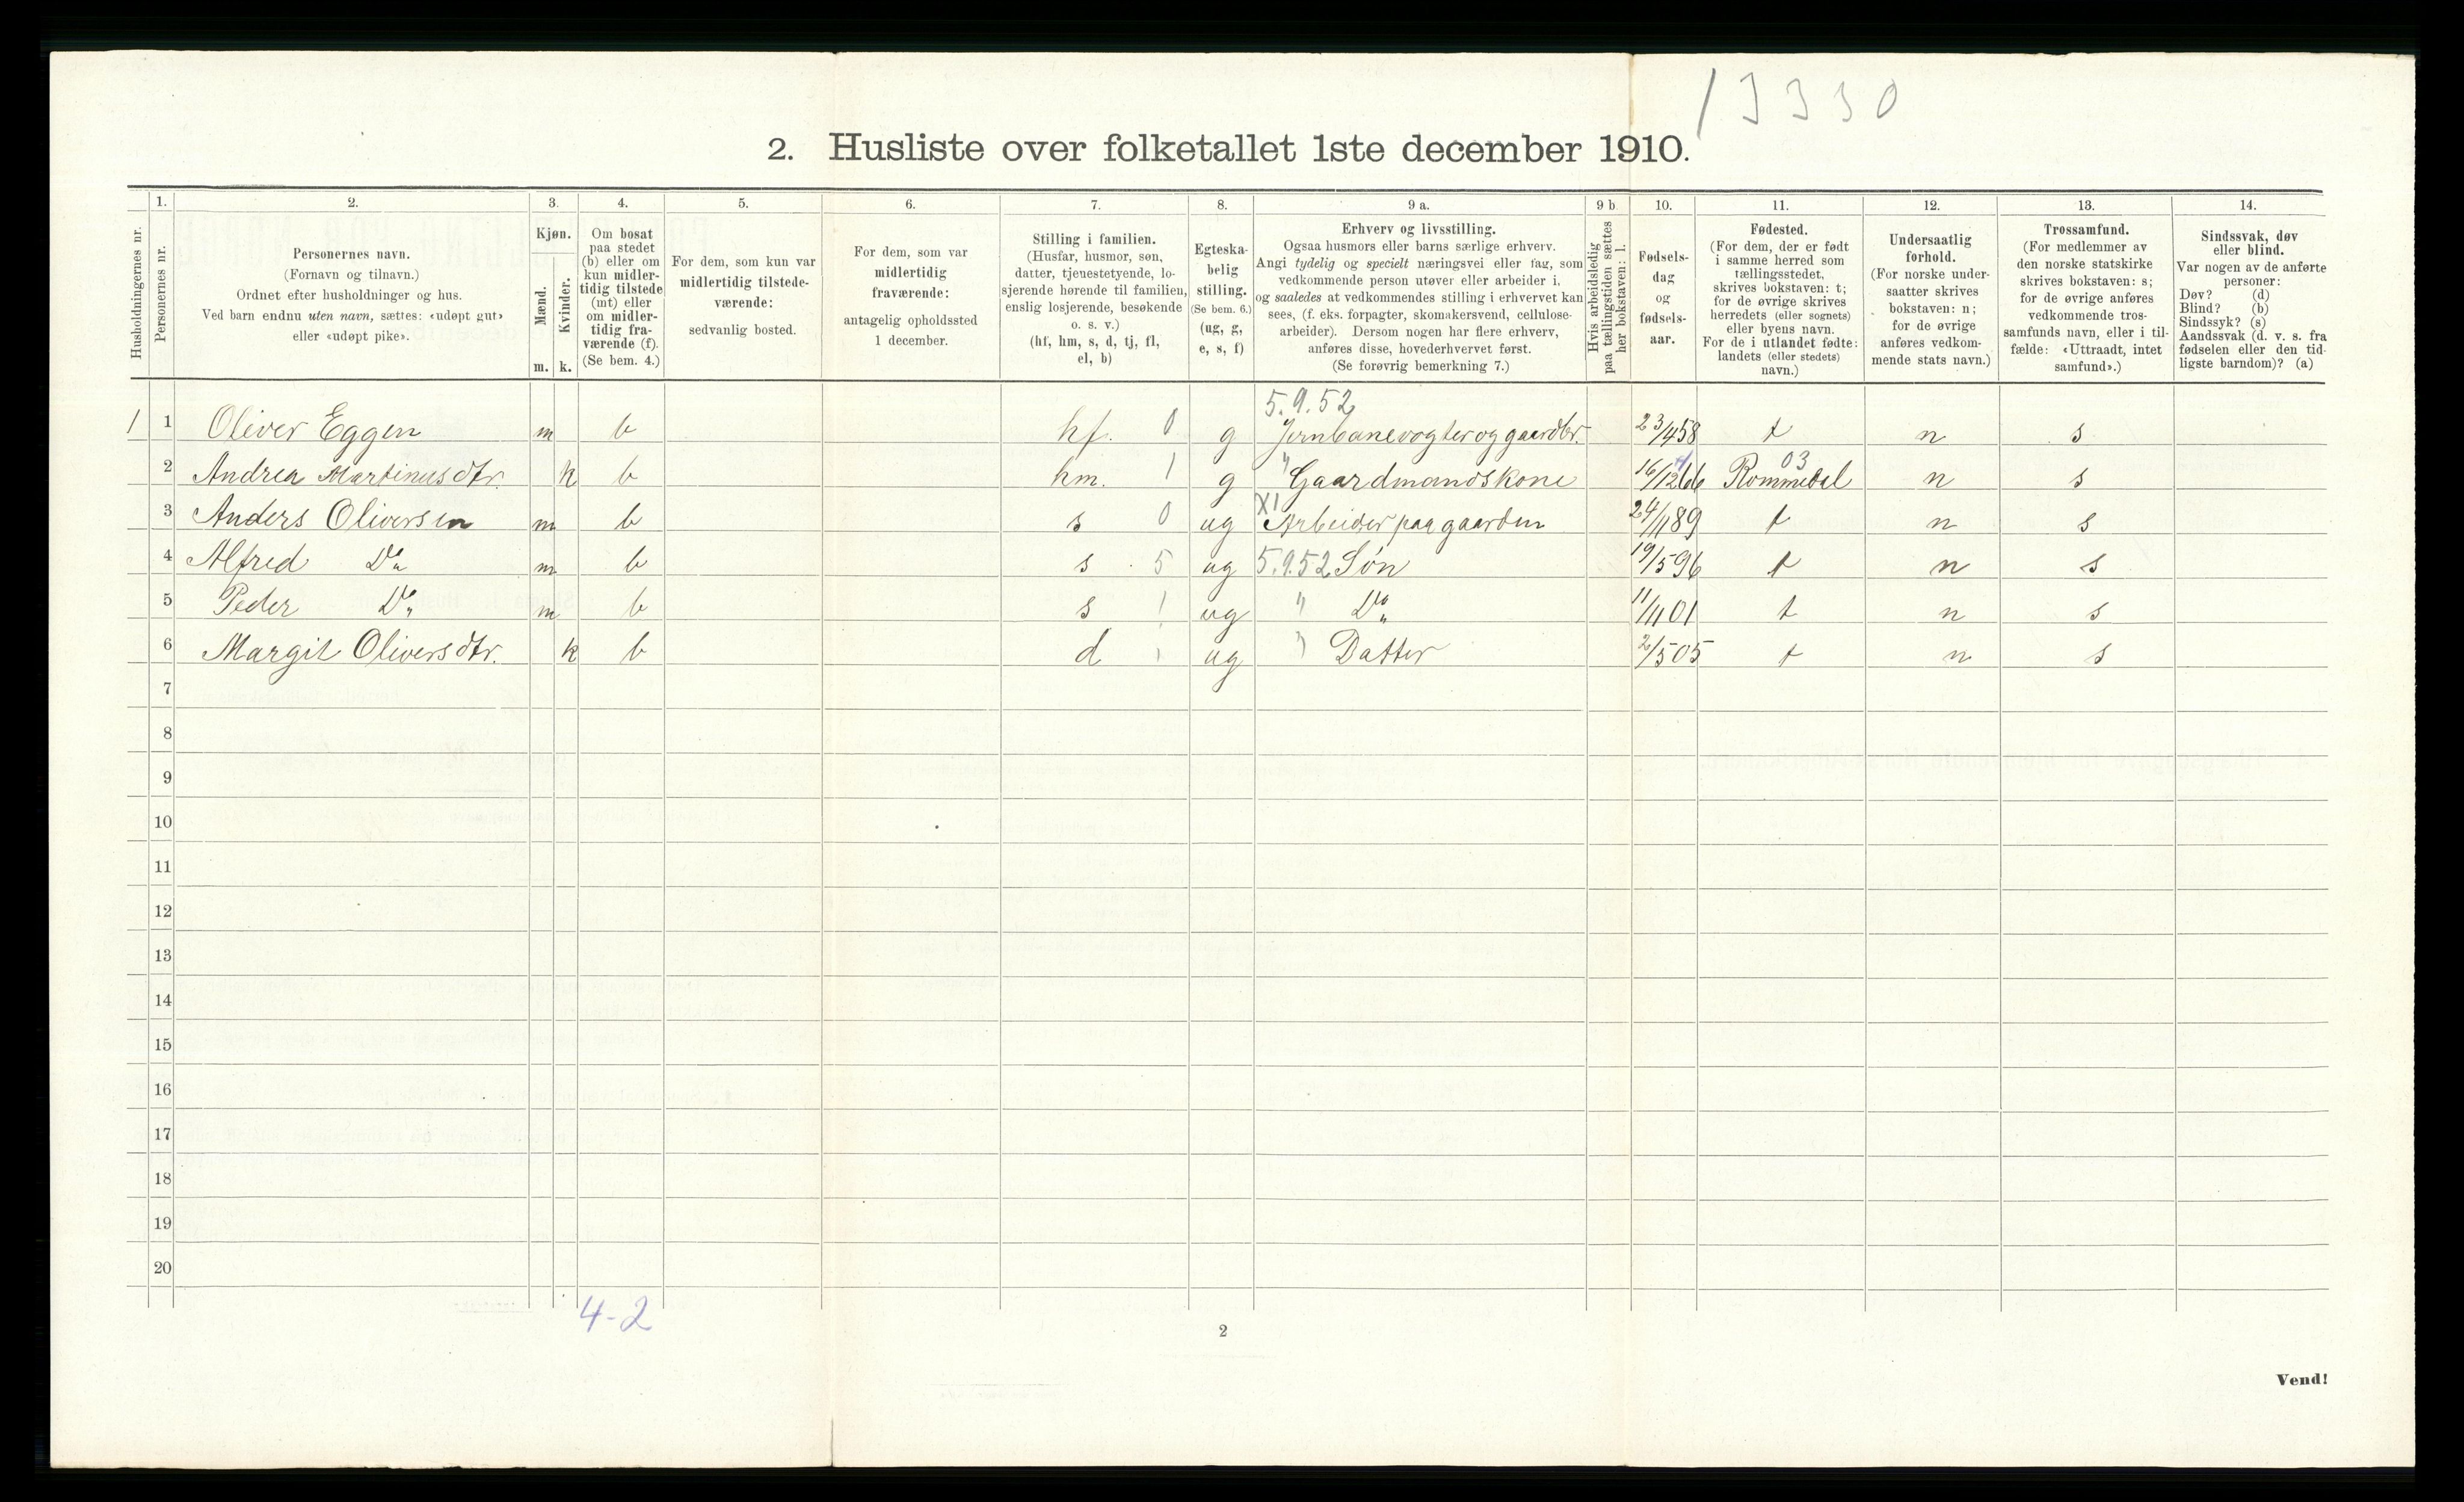 13330
2. Husliste over folketallet 1ste december 1910.
1. 2. 3. 4. 5. 6. 7. 8. 9 a. 9 b 10. 11. 12. 13. 14.
Husholdningernes nr.
Personernes nr.
Personernes navn.
(Fornavn og tilnavn.)
Ordnet efter husholdninger og hus.
Ved barn endnu uten navn, sættes: «udøpt gut»
eller «udøpt pike».
Kjøn.
Mænd.
Kvinder.
m. k.
Om bosat
paa stedet
(b) eller om
kun midler-
tidig tilstede
(mt) eller
om midler-
tidig fra-
værende (f).
(Se bem. 4.)
For dem, som kun var
midlertidig tilstede-
værende:
sedvanlig bosted.
For dem, som var
midlertidig
fraværende:
antagelig opholdssted
1 december.
Stilling i familien.
(Husfar, husmor, søn,
datter, tjenestetyende, lo-
sjerende hørende til familien,
enslig losjerende, besøkende
o. s. v.)
(hf, hm, s, d, tj, fl,
el, b)
Egteska-
belig
stilling.
(Se bem. 6.)
(ug, g,
e, s, f)
Erhverv og livsstilling.
Ogsaa husmors eller barns særlige erhverv.
Angi tydelig og specielt næringsvei eller fag, som
vedkommende person utøver eller arbeider i,
og saaledes at vedkommendes stilling i erhvervet kan
sees, (f. eks. forpagter, skomakersvend, cellulose-
arbeider). Dersom nogen har flere erhverv,
anføres disse, hovederhvervet først.
(Se forøvrig bemerkning 7.)
Hvis arbeidsledig
paa tællingstiden sættes
her bokstaven: l.
Fødsels-
dag
og
fødsels-
aar.
Fødested.
(For dem, der er født
i samme herred som
tællingsstedet,
skrives bokstaven: t;
for de øvrige skrives
herredets (eller sognets)
eller byens navn.
For de i utlandet fødte:
landets (eller stedets)
navn.)
Undersaatlig
forhold.
(For norske under-
saatter skrives
bokstaven: n;
for de øvrige
anføres vedkom-
mende stats navn.)
Trossamfund.
(For medlemmer av
den norske statskirke
skrives bokstaven: s;
for de øvrige anføres
vedkommende tros-
samfunds navn, eller i til-
fælde: «Uttraadt, intet
samfund».)
Sindssvak, døv
eller blind.
Var nogen av de anførte
personer:
Døv? (d)
Blind? (b)
Sindssyk? (s)
Aandssvak (d. v. s. fra
fødselen eller den tid-
ligste barndom)? (a)
5.9.52
1 1 Oliver Eggen m b hf. 0 g Jernbanevogter og gaardbr. 23/4 58 t n s
03
2 Andrea Martinusdtr. k b hm. 1 g " Gaardmandskone 16/12 66 Rommedal n s
XI
3 Anders Oliversen m b s 0 ug Arbeider paa gaarden 24/1 89 t n s
4 Alfred Do m b s 5 ug 5.9.52 Søn 19/5 96 t n s
5 Peder Do m b s 1 ug " Do 11/11 01 t n s
6 Margit Oliversdtr. k b d 1 ug " Datter 2/5 05 t n s
7
8
9
10
11
12
13
14
15
16
17
18
19
20
4-2
2
Vend!